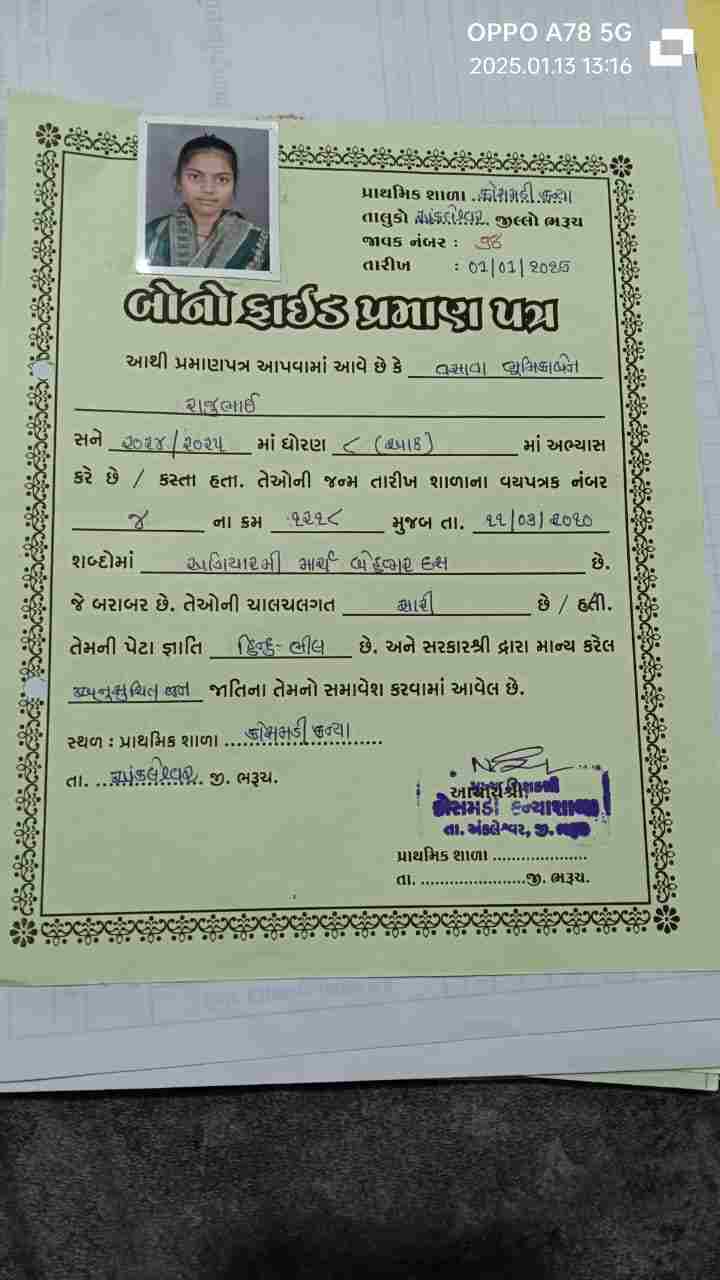 OPPO A78 5G
2025.01.13 13:16
પ્રાથમિક શાળા .કોસમડી કન્યા
તાલુકો અંકલેશ્વર. જીલ્લો ભરૂચ
જાવક નંબર :
તારીખ : 01/01/2025
બોનોફાઈડ પ્રમાણ પત્ર
આથી પ્રમાણપત્ર આપવામાં આવે છે કે વસાવા ભૂમિકાબેન
રાજુભાઈ
સને ૨૦૨૪/૨૦૨૫ માં ધોરણ ૮ (આઠ) માં અભ્યાસ
કરે છે / કરતા હતા. તેઓની જન્મ તારીખ શાળાના વયપત્રક નંબર
જ ના ક્રમ ૧૨૧૮ મુજબ તા. ૧૧/૦૩/૨૦૧૦
શબ્દોમાં અગિયારમી માર્ચ બેહજાર દસ છે.
જે બરાબર છે. તેઓની ચાલચલગત સારી છે / હતી.
તેમની પેટા જ્ઞાતિ હિન્દુ-ભીલ છે. અને સરકારશ્રી દ્રારા માન્ય કરેલ
અનુસુચિત જન જાતિના તેમનો સમાવેશ કરવામાં આવેલ છે.
સ્થળ : પ્રાથમિક શાળા કોસમડી કન્યા
તા. અંકલેશ્વર. જી. ભરૂચ.
આચાર્યશ્રી
મુખ્ય શિક્ષકશ્રી
કોસમડી કન્યાશાળા
તા. અંકલેશ્વર, જી. ભરૂચ
પ્રાથમિક શાળા ....................
તા. ......................જી. ભરૂચ.